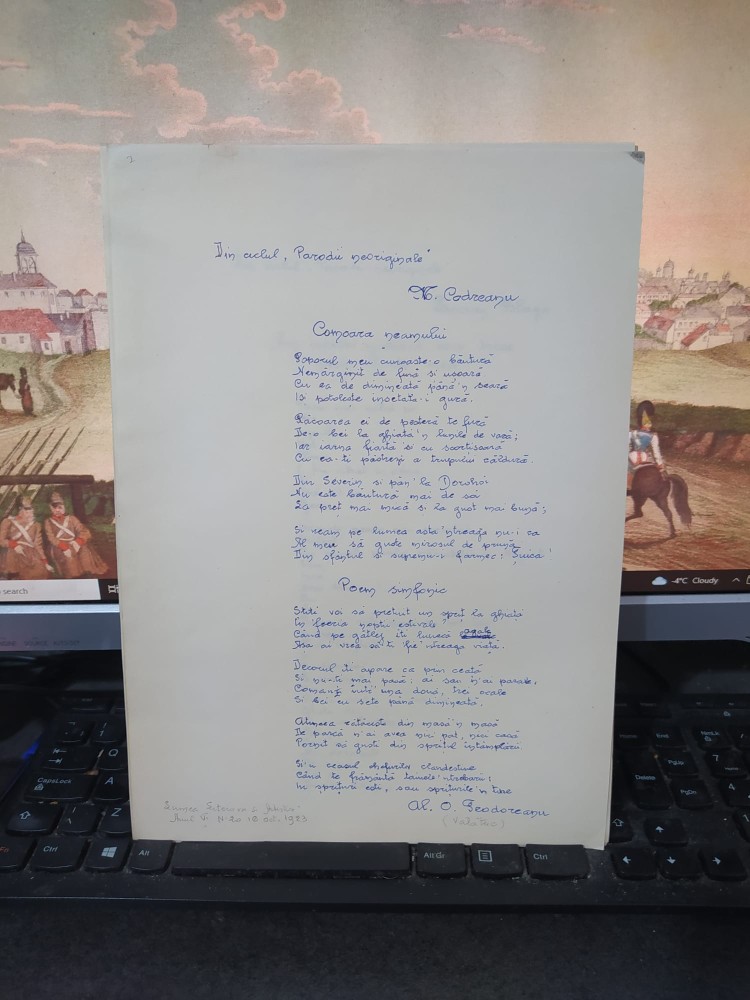 2
Din ciclul „Parodii neoriginale"
M. Codreanu
Comoara neamului
Poporul meu cunoaste-o băutură
Nemărginit de fină si usoară
Cu ea de dimineată până'n seară
Isi potoleste insetata-i gură.
Răcoarea ei de pesteră te fură
De-o bei la ghiată'n lunile de vară;
Iar iarna fiartă si cu scortisoară
Cu ea-ti păstrezi a trupului căldură.
Din Severin si pân' la Dorohoi
Nu este băutură mai de soi
La pret mai mică si la gust mai bună;
Si neam pe lumea asta'ntreaga nu-i ca
Al meu să guste mirosul de prună
Din sfântul si supremu-i farmec: Tuica!
Poem simfonic
Stiti voi să pretuit un sprit la ghiată
In feeria noptii estivale,
Când pe gâtlej iti lunecă agale
Asa ai vrea să-ti fie'ntreaga viată.
Decorul ti apare ca prin ceată
Si nu-ti mai pasă: ai sau n'ai parale,
Comanzi intâi una, două, trei ocale
Si bei cu sete până dimineată.
Atuncea rătăceste din masă'n masă
De parcă n'ai avea nici pat, nici casă
Pornit să gusti din spritul intâmplării
Si'n ceasul chefurilor clandestine
Când te frământă tainele'ntrebării:
In sprituri esti, sau spriturile'n tine
Al. O. Teodoreanu
(Valăreo)
Anul V, N 20 16 oct. 1923
search
-4°C Cloudy
CapsLock
Q
A
Z
Ctrl
Alt
Alt Gr
Ctrl
Delete
End
PgDn
PgUp
NmLk
7
4
1